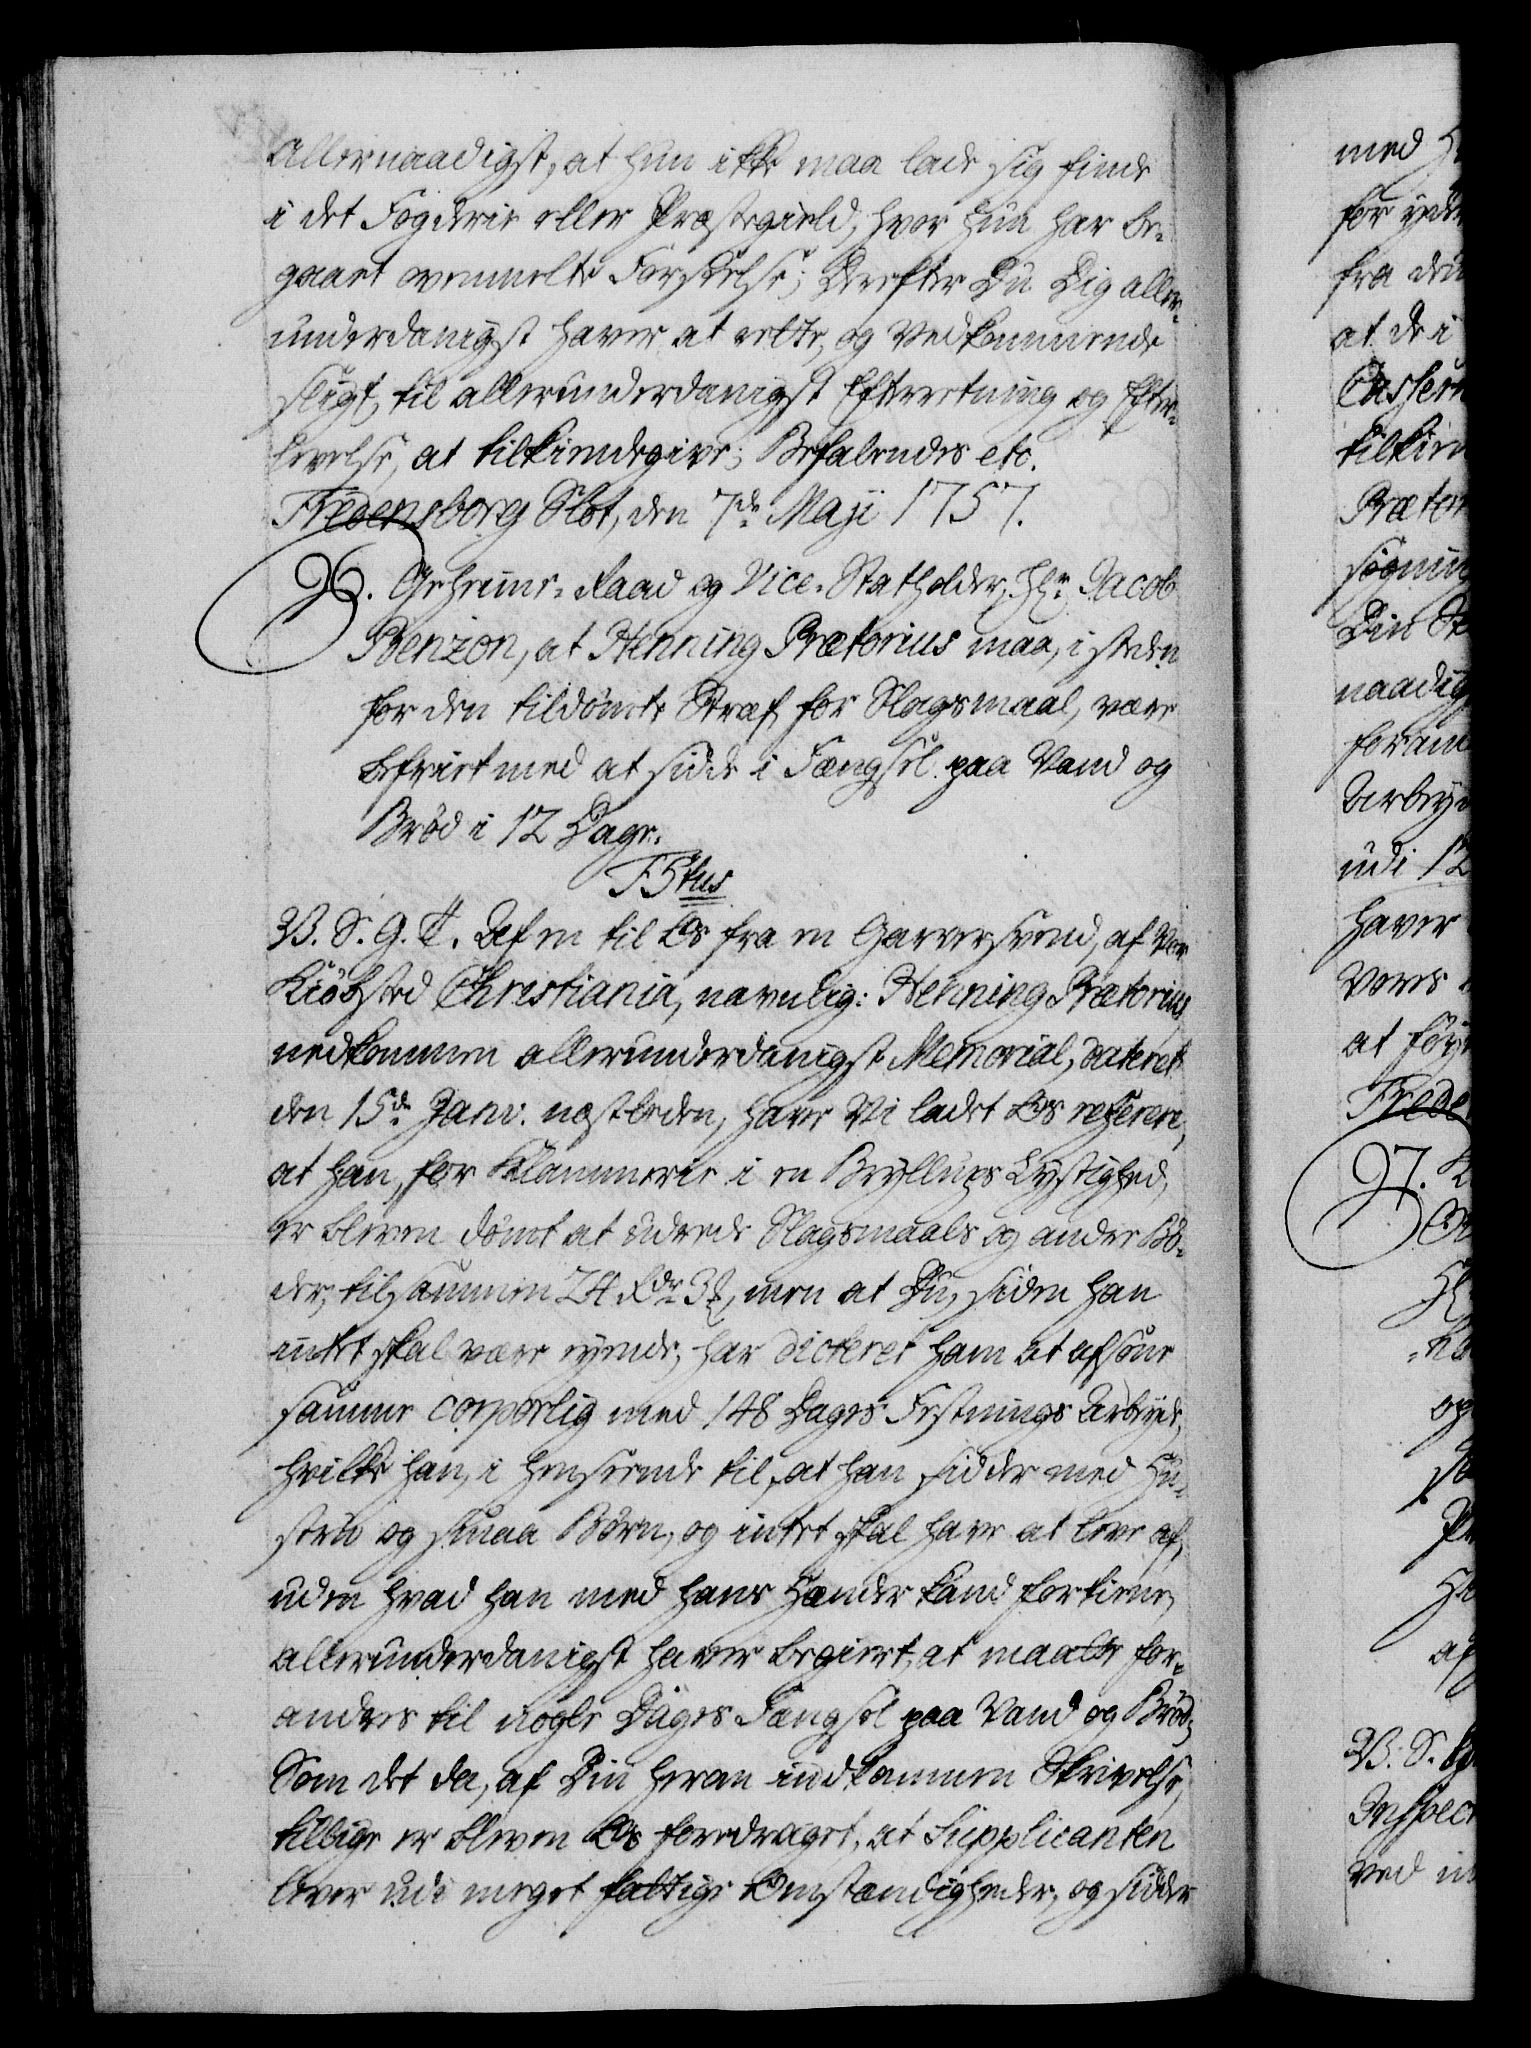 allernaadigst, at hun ikke maa lade sig finde
i det Fogderie eller Præstegield, hvor hun har be-
gaaet ommelte Forseelse; Derefter Du Dig aller-
underdanigst haver at rette, og Vedkommende
sligt, til allerunderdanigst Efterretning og Efter-
levelse, at tilkiendegive; Befalendes etc.
Fredensborg Slot, den 7de Maji 1757.
26. Geheime-Raad og Vice-Statholder, Hr. Jacob
Benzon, at Henning Prætorius maa, i steden
for den tildömte Straf for Slagsmaal, være
befriet med at sidde i Fængsel paa Vand og
Bröd i 12 Dage.
F5tus
V. S. G. T. Af en til Os fra en Garversvend, af Vor
Kiöbsted Christiania, navnlig: Henning Prætorius
nedkommen allerunderdanigst Memorial, dateret
den 15de Janv. næstleden, have Vi ladet Os referere,
at han, for Klammerie i en Bryllups Lystighed,
er bleven dömt at udrede Slagsmaals og andre Bö-
der, tilsammen 24 Rdr 3 , men at Du, siden han
intet skal være eyende, har dicteret ham at afsone
samme corporlig med 148 Dages Festnings Arbeyde,
hvilke han, i henseende til, at han sidder med Hu-
strue og smaa Börn, og intet skal have at leve af,
uden hvad han med hans Hænder kand fortiene,
allerunderdanigst haver begiert, at maatte for-
andres til nogle Dages Fængsel paa Vand og Bröd;
Som det da, af Din herom indkommen Skrivelse,
tillige er bleven Os foredraget, at Supplicanten
lever udi meget fattige Omstændigheder, og sidder
med
for
fra
at de i
naadig
udi 12
haver
Vores
at
27.
V. S.
ved